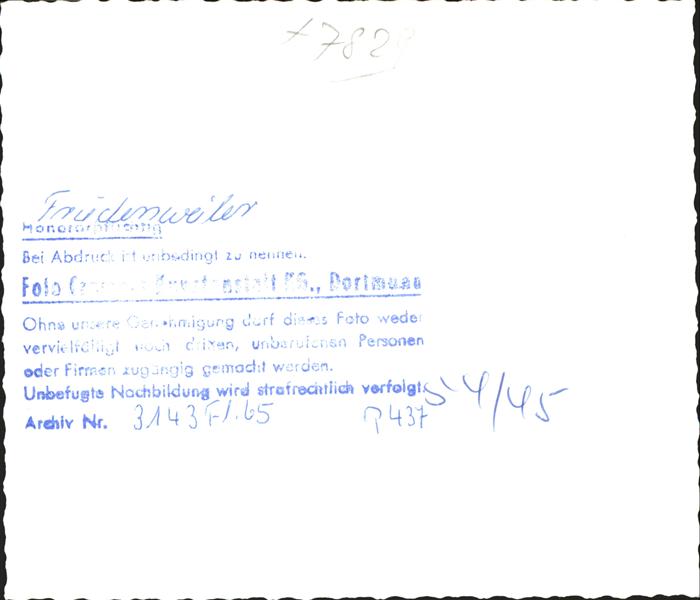 + 7829
Friedenweiler
Honorarpflichtig
Bei Abdruck ist unbedingt zu nennen:
Foto Kunstanstalt KG., Dortmund
Ohne unsere Genehmigung darf dieses Foto weder
vervielfältigt noch dritten, unberufenen Personen
oder Firmen zugängig gemacht werden.
Unbefugte Nachbildung wird strafrechtlich verfolgt.
54/45
Archiv Nr. 3143 Fl. 65 P 437